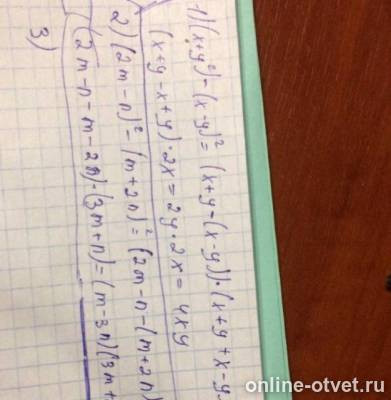 1) (x+y²) - (x-y)² = (x+y-(x-y))·(x+y+x-y
(x+y-x+y)·2x = 2y·2x = 4xy
2) (2m-n)² = (m+2n)² = (2m-n-(m+2n)
(2m-n-m-2n)·(3m+n) = (m-3n)(3m+
3)
online-otvet.ru